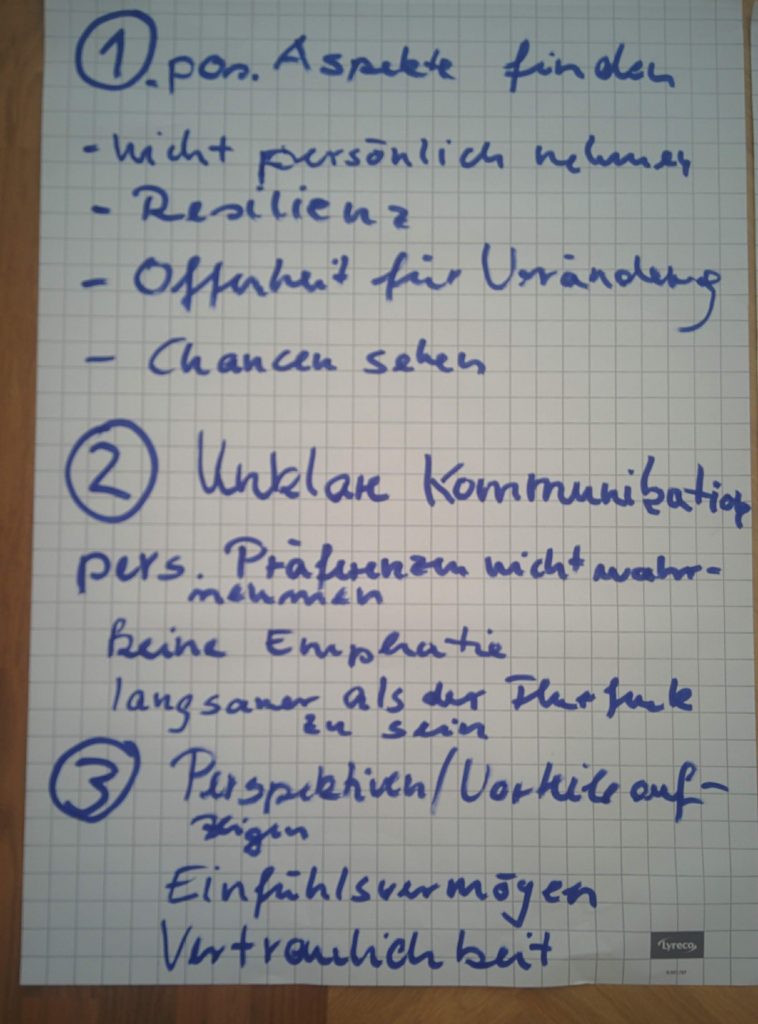 1. pos. Aspekte finden
- nicht persönlich nehmen
- Resilienz
- Offenheit für Veränderung
- Chancen sehen
2 Unklare Kommunikation
pers. Präferenzen nicht wahr-
nehmen
keine Emphatie
langsamer als der Flurfunk
zu sein
3 Perspektiven/Vorteile auf-
zeigen
Einfühlsvermögen
Vertraulichkeit
Lyreco